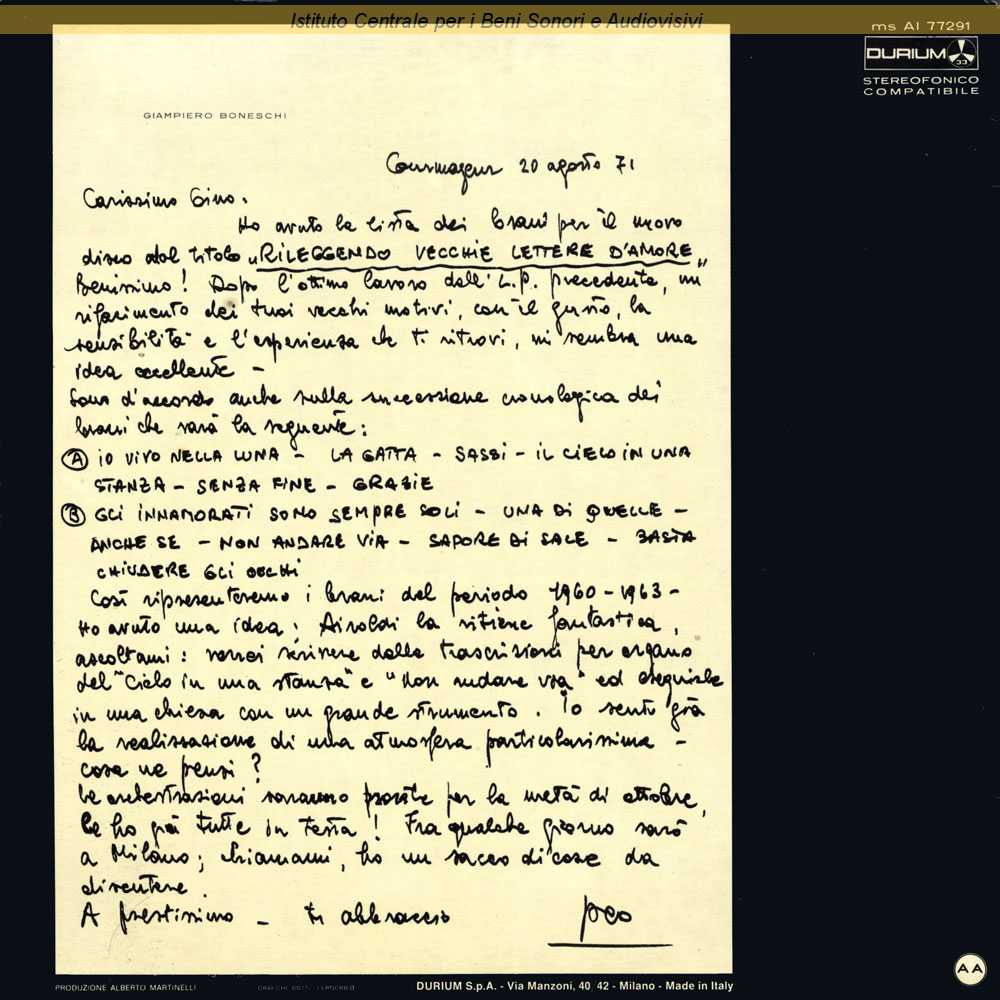 Istituto Centrale per i Beni Sonori e Audiovisivi
ms AI 77291
DURIUM
33
STEREOFONICO
COMPATIBILE
GIAMPIERO BONESCHI
Courmayeur 20 agosto 71
Carissimo Gino.
Ho avuto la lista dei brani per il nuovo
disco dal titolo „RILEGGENDO VECCHIE LETTERE D'AMORE„
Benissimo! Dopo l'ottimo lavoro dell'L.P. precedente, un
rifacimento dei tuoi vecchi motivi, con il gusto, la
sensibilità e l'esperienza che ti ritrovi, mi sembra una
idea eccellente –
Sono d'accordo anche sulla successione cronologica dei
brani che sarà la seguente:
Ⓐ IO VIVO NELLA LUNA – LA GATTA – SASSI – IL CIELO IN UNA
STANZA – SENZA FINE – GRAZIE
Ⓑ GLI INNAMORATI SONO SEMPRE SOLI – UNA DI QUELLE –
ANCHE SE – NON ANDARE VIA – SAPORE DI SALE – BASTA
CHIUDERE GLI OCCHI
Così ripresenteremo i brani del periodo 1960-1963-
Ho avuto una idea; Airoldi la ritiene fantastica,
ascoltami: vorrei scrivere delle trascrizioni per organo
del "Cielo in una stanza" e "non andare via" ed eseguirle
in una chiesa con un grande strumento. Io sento già
la realizzazione di una atmosfera particolarissima –
cosa ne pensi?
Le orchestrazioni saranno pronte per la metà di ottobre,
le ho già tutte in testa! Fra qualche giorno sarò
a Milano; chiamami, ho un sacco di cose da
discutere.
A prestissimo – ti abbraccio
peo
PRODUZIONE ALBERTO MARTINELLI
DURIUM S.p.A. - Via Manzoni, 40 42 - Milano - Made in Italy
AA